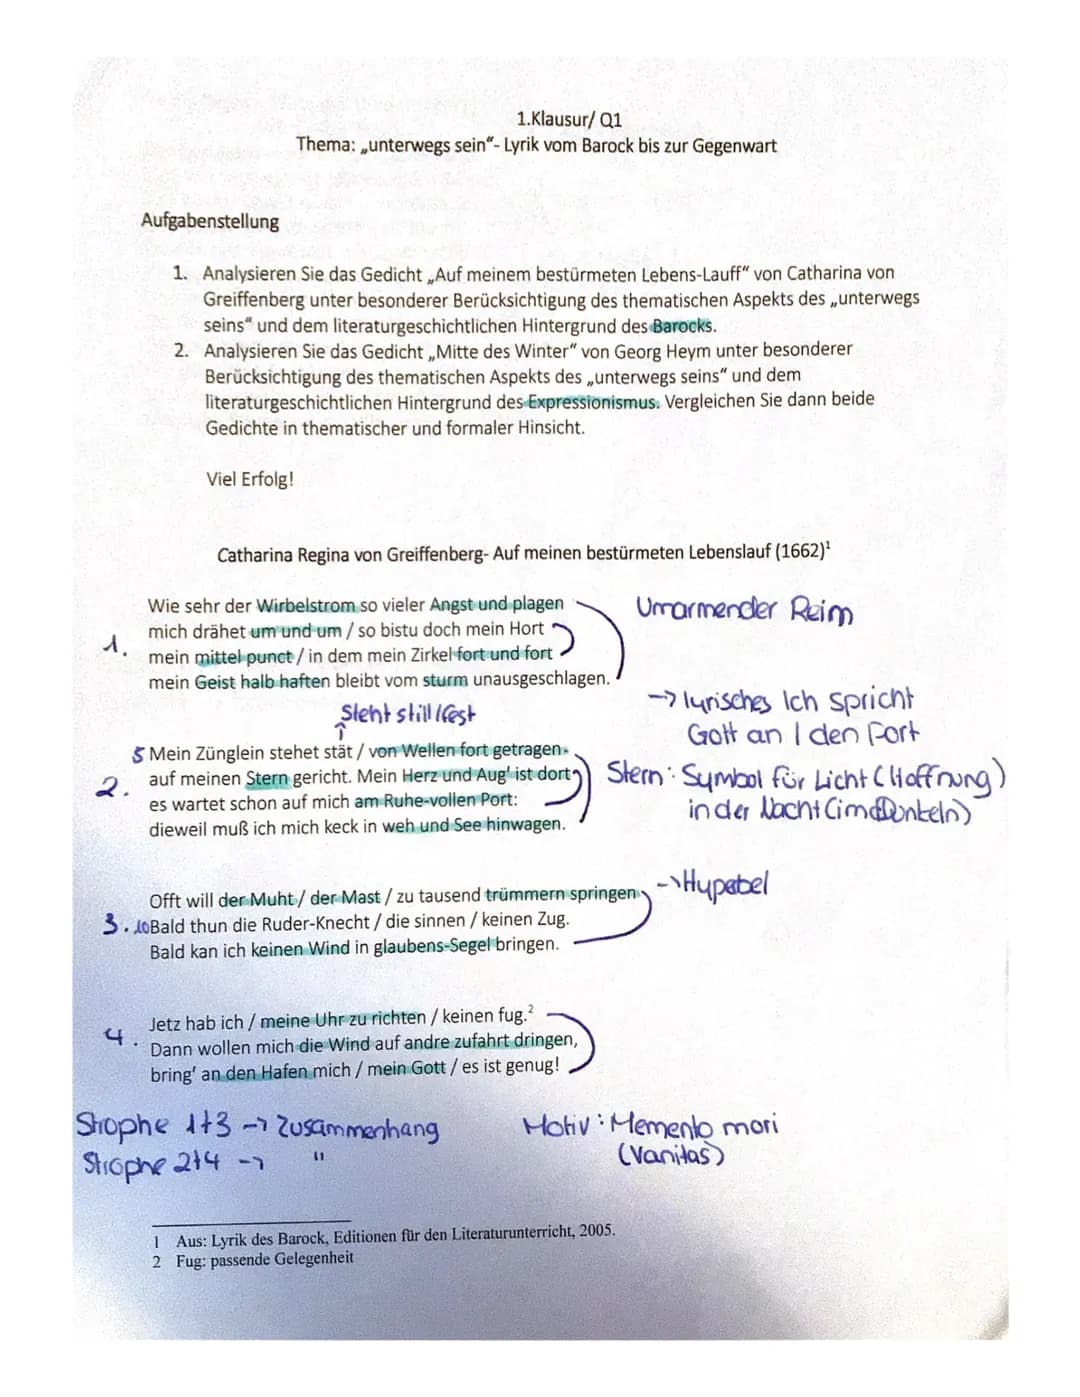 1.Klausur/ Q1
Thema: „unterwegs sein“- Lyrik vom Barock bis zur Gegenwart
Aufgabenstellung
1. Analysieren Sie das Gedicht „Auf meinem bestürmeten Lebens-Lauff“ von Catharina von
Greiffenberg unter besonderer Berücksichtigung des thematischen Aspekts des „unterwegs
seins“ und dem literaturgeschichtlichen Hintergrund des Barocks.
2. Analysieren Sie das Gedicht „Mitte des Winter“ von Georg Heym unter besonderer
Berücksichtigung des thematischen Aspekts des „unterwegs seins“ und dem
literaturgeschichtlichen Hintergrund des Expressionismus. Vergleichen Sie dann beide
Gedichte in thematischer und formaler Hinsicht.
Viel Erfolg!
Catharina Regina von Greiffenberg- Auf meinen bestürmeten Lebenslauf (1662)¹
Wie sehr der Wirbelstrom so vieler Angst und plagen
Umarmender Reim
mich drähet um und um / so bistu doch mein Hort
1.
mein mittel punct / in dem mein Zirkel fort und fort
mein Geist halb haften bleibt vom sturm unausgeschlagen.
-> lyrisches Ich spricht
Gott an / den Port
Steht still/fest
5 Mein Zünglein stehet stät / von Wellen fort getragen
2. auf meinen Stern gericht. Mein Herz und Aug' ist dort
Stern: Symbol für Licht (Hoffnung)
in der Nacht (im Dunkeln)
es wartet schon auf mich am Ruhe-vollen Port:
dieweil muß ich mich keck in weh und See hinwagen.
Offt will der Muht / der Mast / zu tausend trümmern springen
-> Hypebel
3. 10 Bald thun die Ruder-Knecht / die sinnen / keinen Zug.
Bald kan ich keinen Wind in glaubens-Segel bringen.
Jetz hab ich / meine Uhr zu richten / keinen fug.²
4. Dann wollen mich die Wind auf andre zufahrt dringen,
bring' an den Hafen mich / mein Gott / es ist genug!
Strophe 1+3 -> Zusammenhang
Strophe 2+4 -> "
Motiv: Memento mori
(Vanitas)
1 Aus: Lyrik des Barock, Editionen für den Literaturunterricht, 2005.
2 Fug: passende Gelegenheit